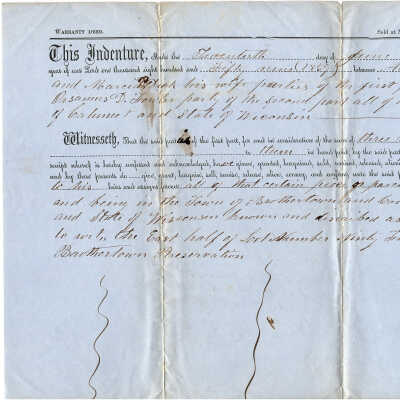 WARRANTY DEED. Sold at
This Indenture, Made the Twentieth day of June
year of our Lord one thousand eight hundred and Fifty seven (1857) between
and his wife parties of the first
Orsamus D. Fowler party of the second part all of
of Calumet and State of Wisconsin
Witnesseth, That the said part of the first part, for and in consideration of the sum of three
to them in hand paid
receipt whereof is hereby confessed and acknowledged, have given, granted, bargained, sold, remised, released, aliened
and by these presents do give, grant, bargain, sell, remise, release, alien, convey, and confirm unto the said
to his heirs and assigns forever, all of that certain piece or parcel
and being in the Town of Brothertown and
and State of Wisconsin known and described as
to wit, the East half of Lot Number Ninety
Brothertown Reservation